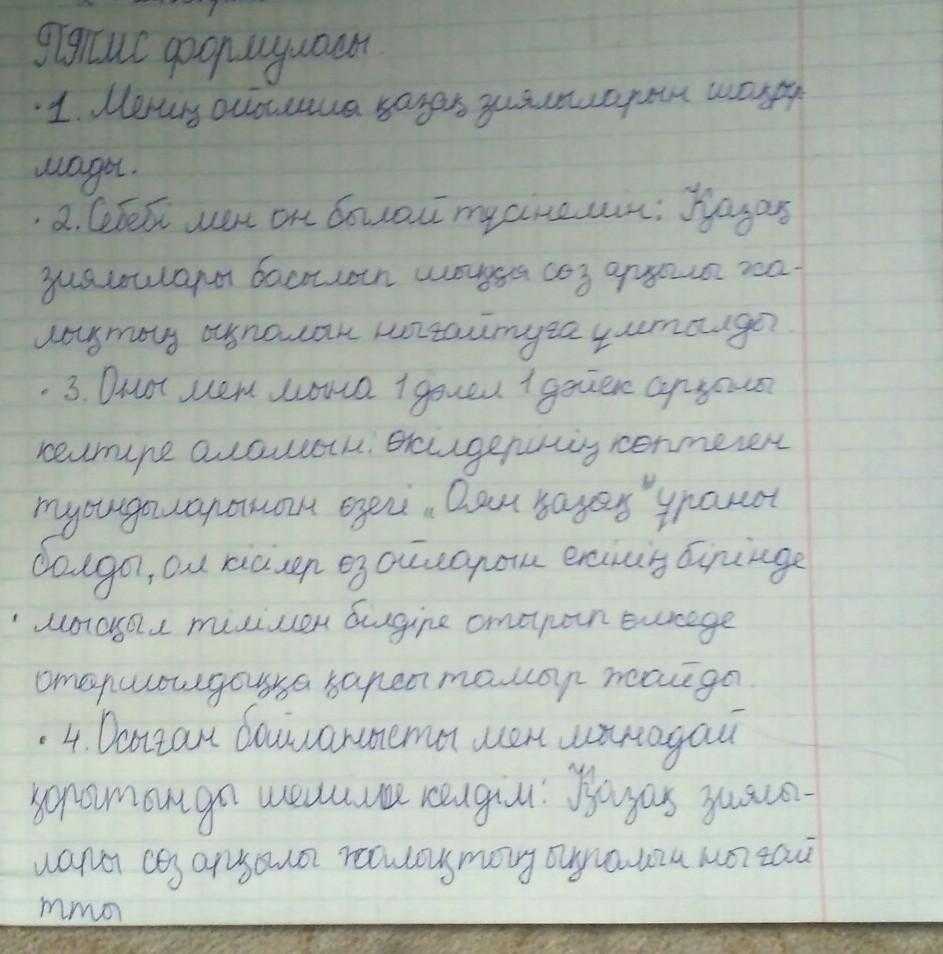 ПТМС формуласы.
· 1. Менің ойымша қазақ зиялыларын шақыр
мады.
· 2. Себебі мен он былай түсінемін: Қазақ
зиялылары басылып шыққа сөз арқылы ха-
лықтың ықпалын нығайтуға ұмтылды.
· 3. Оны мен мына 1 дәлел 1 дәйек арқылы
келтіре аламын: өкілдерінің көптеген
туындыларынын өзегі „Оян қазақ" ұраны
болды, ол кісілер өз ойларын екінің бірінде
· мысқыл тілімен білдіре отырып өлкеде
отаршылдыққа қарсы тамыр жайды.
· 4. Осыған байланысты мен мынадай
қорытынды шешімге келдім: Қазақ зиялы-
лары сөз арқылы халықтың ықпалын нығай
тты